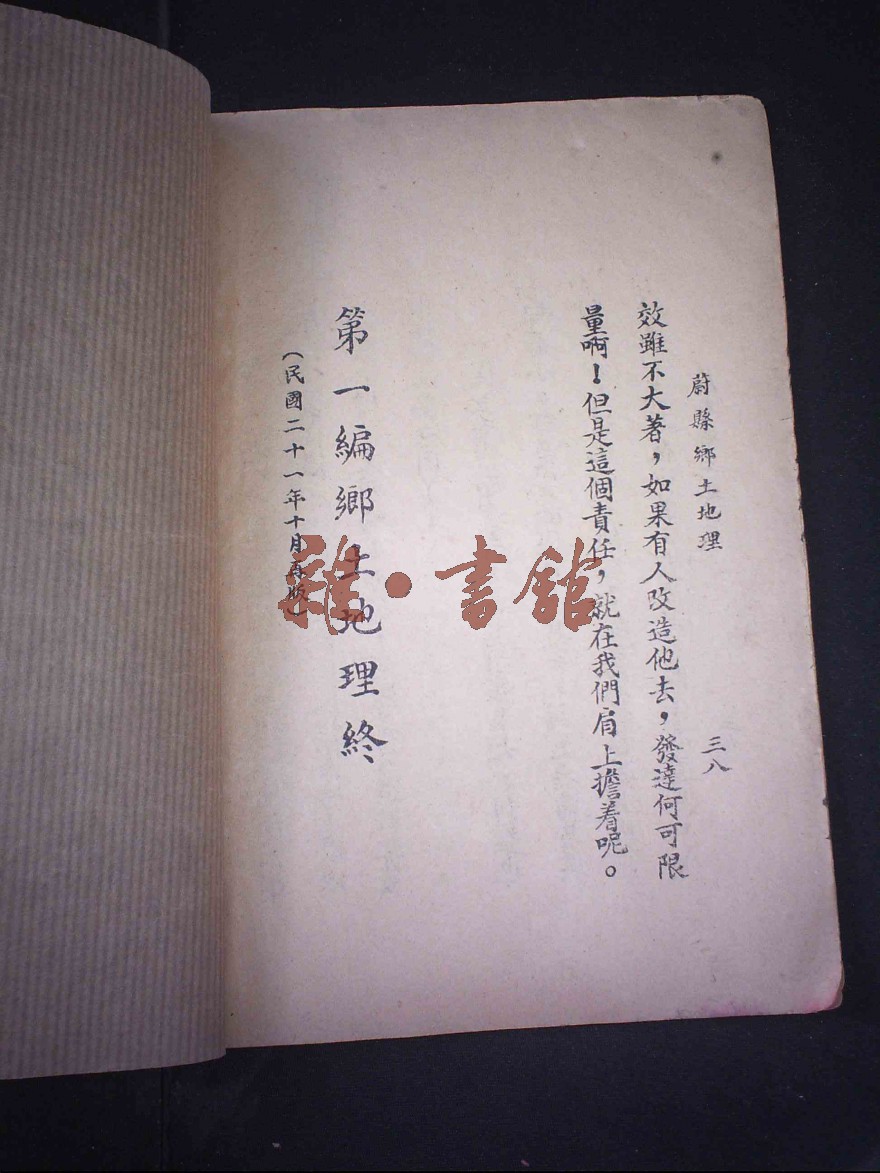 蔚縣鄉土地理
三八
效雖不大著，如果有人改造他去，發達何可限
量啊！但是這個責任，就在我們肩上擔着呢。
第一編鄉土地理終
（民國二十一年十月再版）
雜·書館